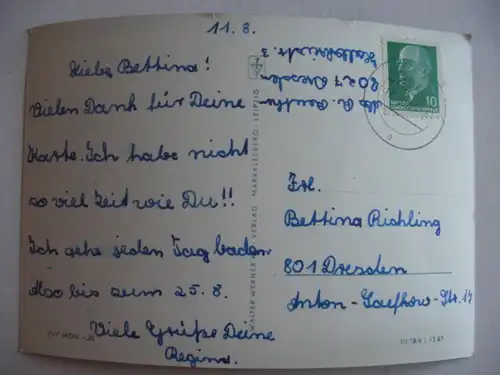 11.8.
Liebe Bettina!
Vielen Dank für Deine
Karte. Ich habe nicht
so viel Zeit wie Du!!
Ich gehe jeden Tag baden
Also bis zum 25.8.
Viele Grüße Deine
Regina.
8027 Dresden
WALTER WERNER VERLAG MARKKLEEBERG-LEIPZIG
10
Frl.
Bettina Richling
801 Dresden
Anton-Saefkow-Str. 14